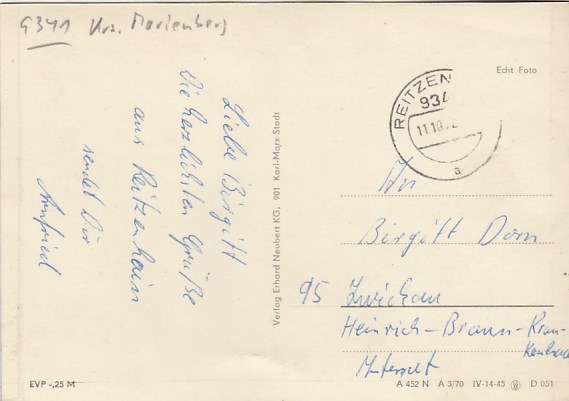 9341 Krs. Marienberg
Liebe Birgitt
Die herzlichsten Grüße
aus Reitzenhain
sendet Dir
Annfried
Verlag Erhard Neubert KG, 901 Karl-Marx-Stadt
Echt Foto
REITZEN
934
11.10.
a
An
Birgitt Dorn
95 Zwickau
Heinrich-Braun-Kran-
kenhaus
EVP -,25 M
A 452 N A 3/70 IV-14-45 D 051